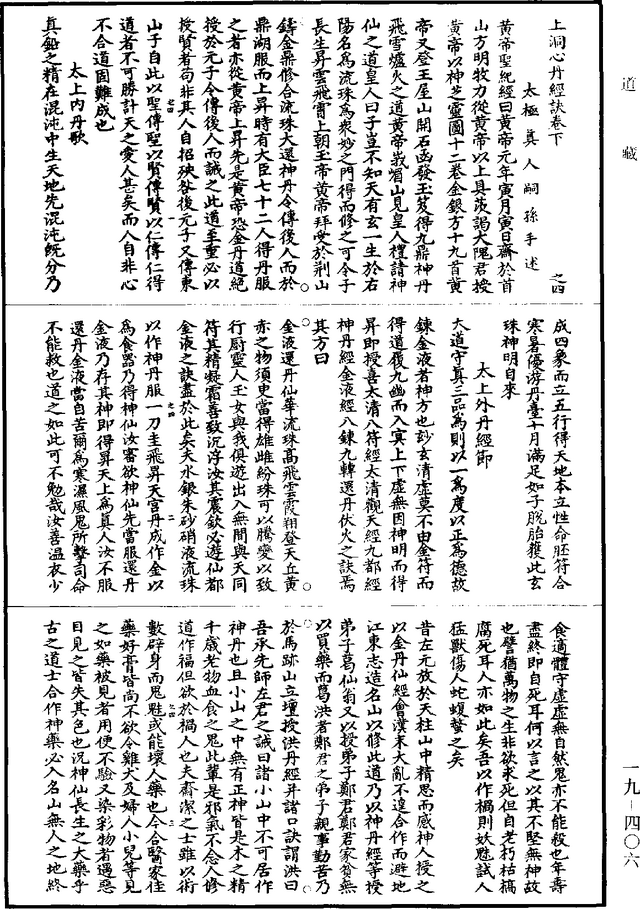 道藏
上洞心丹經訣卷下
太極真人嗣孫手述
之四
黃帝聖紀經曰黃帝元年寅月寅日齋於首
山方明牧力從黃帝以上具茨謁大隗君授
黃帝以神芝靈圖十二卷金銀方十九首黃
帝又登王屋山開石函發玉笈得九鼎神丹
飛雪爐火之道黃帝敢崏山見皇人禮請神
仙之道皇人曰子豈不知天有玄一生於右
陽名為流珠為衆妙之門得而修之可令子
長生昇雲飛霄上朝玉帝黃帝拜受於荆山
鑄金鼎修合流珠大還神丹令傳後人而於
鼎湖服而上昇時有大臣七十二人得丹服
之者亦從黃帝上昇先是黃帝恐金丹道絕
授於元子令傳後人而誡之此道至重必以
授賢者苟非其人自招殃咎後元子又傳東
山子自此以聖傳聖以賢傳賢以仁傳仁得
道者不可勝計天之愛人甚矣而人自非心
不合道固難成也
太上內丹歌
真鉛之精在混沌中生天地先混沌旣分乃
成四象而立五行得天地本立性命胚符合
寒暑優游丹臺十月滿足如子脫胎獲此玄
珠神明自來
太上外丹經節
大道守真三品為則以一為度以正為德故
鍊金液者神方也玅玄清虛莫不由金符而
得道履九幽而入冥上下虛無因神明而得
昇即授喜太清八符經太清觀天經九都經
神丹經金液經八鍊九轉還丹伏火之訣焉
其方曰
金液還丹仙華流珠高飛雲霞翔登天丘黃
赤之物須臾當得雄雌紛珠可以騰變以致
行厨靈人玉女與我俱遊出入無間與天同
符其精凝霜善致沉浮汝其震欽必遊仙都
金液之訣盡於此矣夫水銀朱砂硝液流珠
以作神丹服一刀圭飛昇天宮丹成作金以
為食器乃得神仙汝審欲神仙先當服還丹
金液乃存其神即得昇天上為真人汝不服
還丹金液當自苦爾為寒濕風鬼所擊司命
不能救也道之如此可不勉哉汝善溫衣少
食適體守虛虛無自然鬼亦不能殺也年壽
盡終即自死耳何以言之以其不堅無神故
也譬猶萬物之生非欲求死但自老朽枯槁
腐死耳人亦如此矣吾以作禍則妖魅試人
猛獸傷人蛇蝮螫之矣
昔左元放於天柱山中精思而感神人授之
以金丹仙經會漢末大亂不遑合作而避地
江東志造名山以修此道乃以神丹經等授
弟子葛仙翁又以授弟子鄭君鄭君家貧無
以買藥而葛洪者鄭君之弟子親事勤苦乃
於馬跡山立壇授洪丹經并諸口訣謂洪曰
吾承先師左君之誡曰諸小山中不可居作
神丹也且小山之中無有正神皆是木之精
千歲老物血食之鬼此輩是邪氣不念人修
道作福但欲於禍人也夫齋潔之士雖以術
數辟身而鬼魅或能壞人藥也今合醫家佳
藥好膏皆尚不欲令雞犬及婦人小兒等見
之如藥被見者用便不驗又染彩物者遇惡
目見之皆失其色也況神仙長生之大藥乎
古之道士合作神藥必入名山無人之地終
一九-四〇六